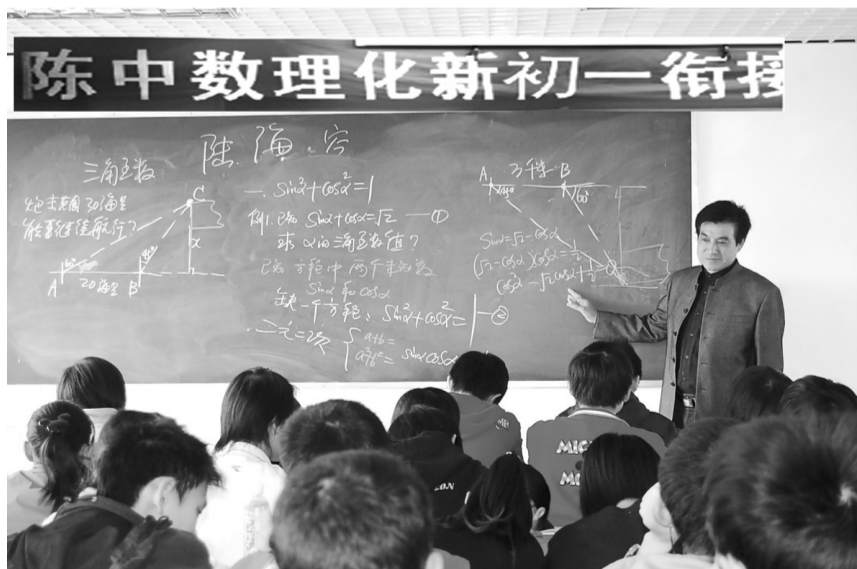 陈中数理化新初一衔接
陆海容
三角函数
炮击范围 30海里
能否继续航行?
C
x
A
20海里
B
一. Sin²α+Cosα²=1
例1. 已知 Sinα+Cosα=√2 —①
求α的三角函数值?
已知方程中两个未知数
Sinα和Cosα
缺一个方程: Sin²α+cosα²=1 —②
二元二次
a+b=
a²+b²=
sinα cosα
A
3千米
B
60°
Sinα=√2-Cosα
(√2-Cosα)Cosα=1/2
Cos²α-√2Cosα+1/2=0
MIC
MO